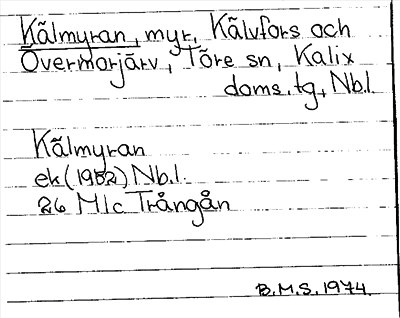 Kälmyran, myr, Kälvfors och
Övermorjärv, Töre sn, Kalix
doms.tg, Nbl.
Kälmyran
ek (1952) Nb.l.
26 M1c Trångån
B.M.S. 1974.